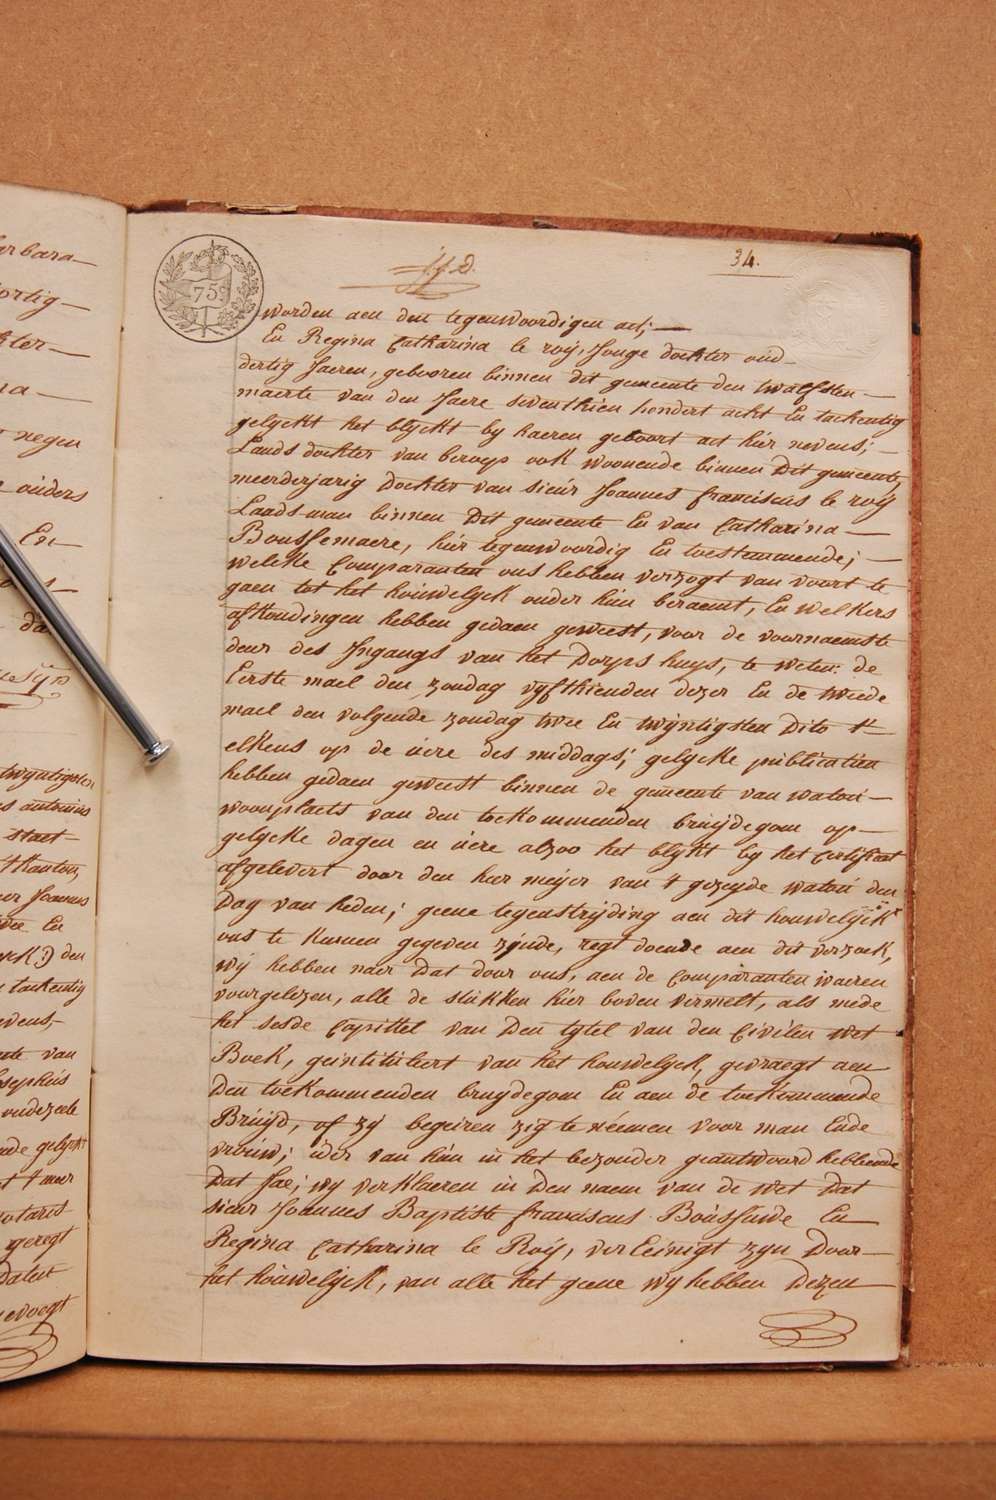 34.
759
worden aen den tegenwoordigen act;
En Regina Catharina le roij, Jonge dochter oud
dertig Jaeren, gebooren binnen dit gemeente den twalfsten
maerte van den Jaere seventhien hondert acht En tachentig
gelyckt het blyckt by haeren geboort act hier nevens;
Landsdochter van beroep ook woonende binnen Dit gemeente,
meerderjarig dochter van sieur Joannes franciscus le roij
Landsman binnen Dit gemeente En van Catharina
Boussemaere, hier tegenwoordig En toestemmende;
welcke Comparanten ons hebben verzogt van voort te
gaen tot het houwelyck onder hun beraemt, En welkers
afkondingen hebben gedaen geweest, voor de voornaemste
deur des Ingangs van het Dorpshuys, te weten: de
Eerste mael den zondag vyfthienden dezer En de tweede
mael den volgende zondag twee En twyntigsten Dito t'
elkens op de uere des middags; gelycke publicatien
hebben gedaen geweest binnen de gemeente van watou
woonplaets van den toekommenden bruijdegom op
gelycke dagen en uere alzoo het blykt by het certificat
afgelevert door den heer meijer van 't gezeyde watou den
Dag van heden; geene tegenstrijding aen dit houwelyck
ons te kennen gegeven zijnde, regt doende aen dit verzoek,
wij hebben naer Dat door ons, aen de Comparanten waeren
voorgelezen, alle de stukken hier boven vermelt, als mede
het sesde Capittel van Den tytel van den Civilen Wet
Boek, geintituleert van het houwelyck, gevraegt aen
Den toekommenden bruydegom En aen de toekommende
Bruijd, of zy begeiren zig te néemen voor man Ende
vrouw; ider van hun in het bezonder geantwoord hebbende
Dat Jae; wy verklaeren in Den naem van de wet Dat
sieur Joannes Baptiste franciscus Boussuwe En
Regina Catharina le Roij, verEeinigt zyn Door
het houwelyck, van alle het geene wy hebben Dezen
arbara
ortig
kter
na
negen
ouders
En
da
twyntigsten
antonius
staet
't kanton,
Joannes
En
den
tachentig
evens,
van
osephus
onderzeele
gelyckt
't meer
notaris
geregt
Datent
evoegt